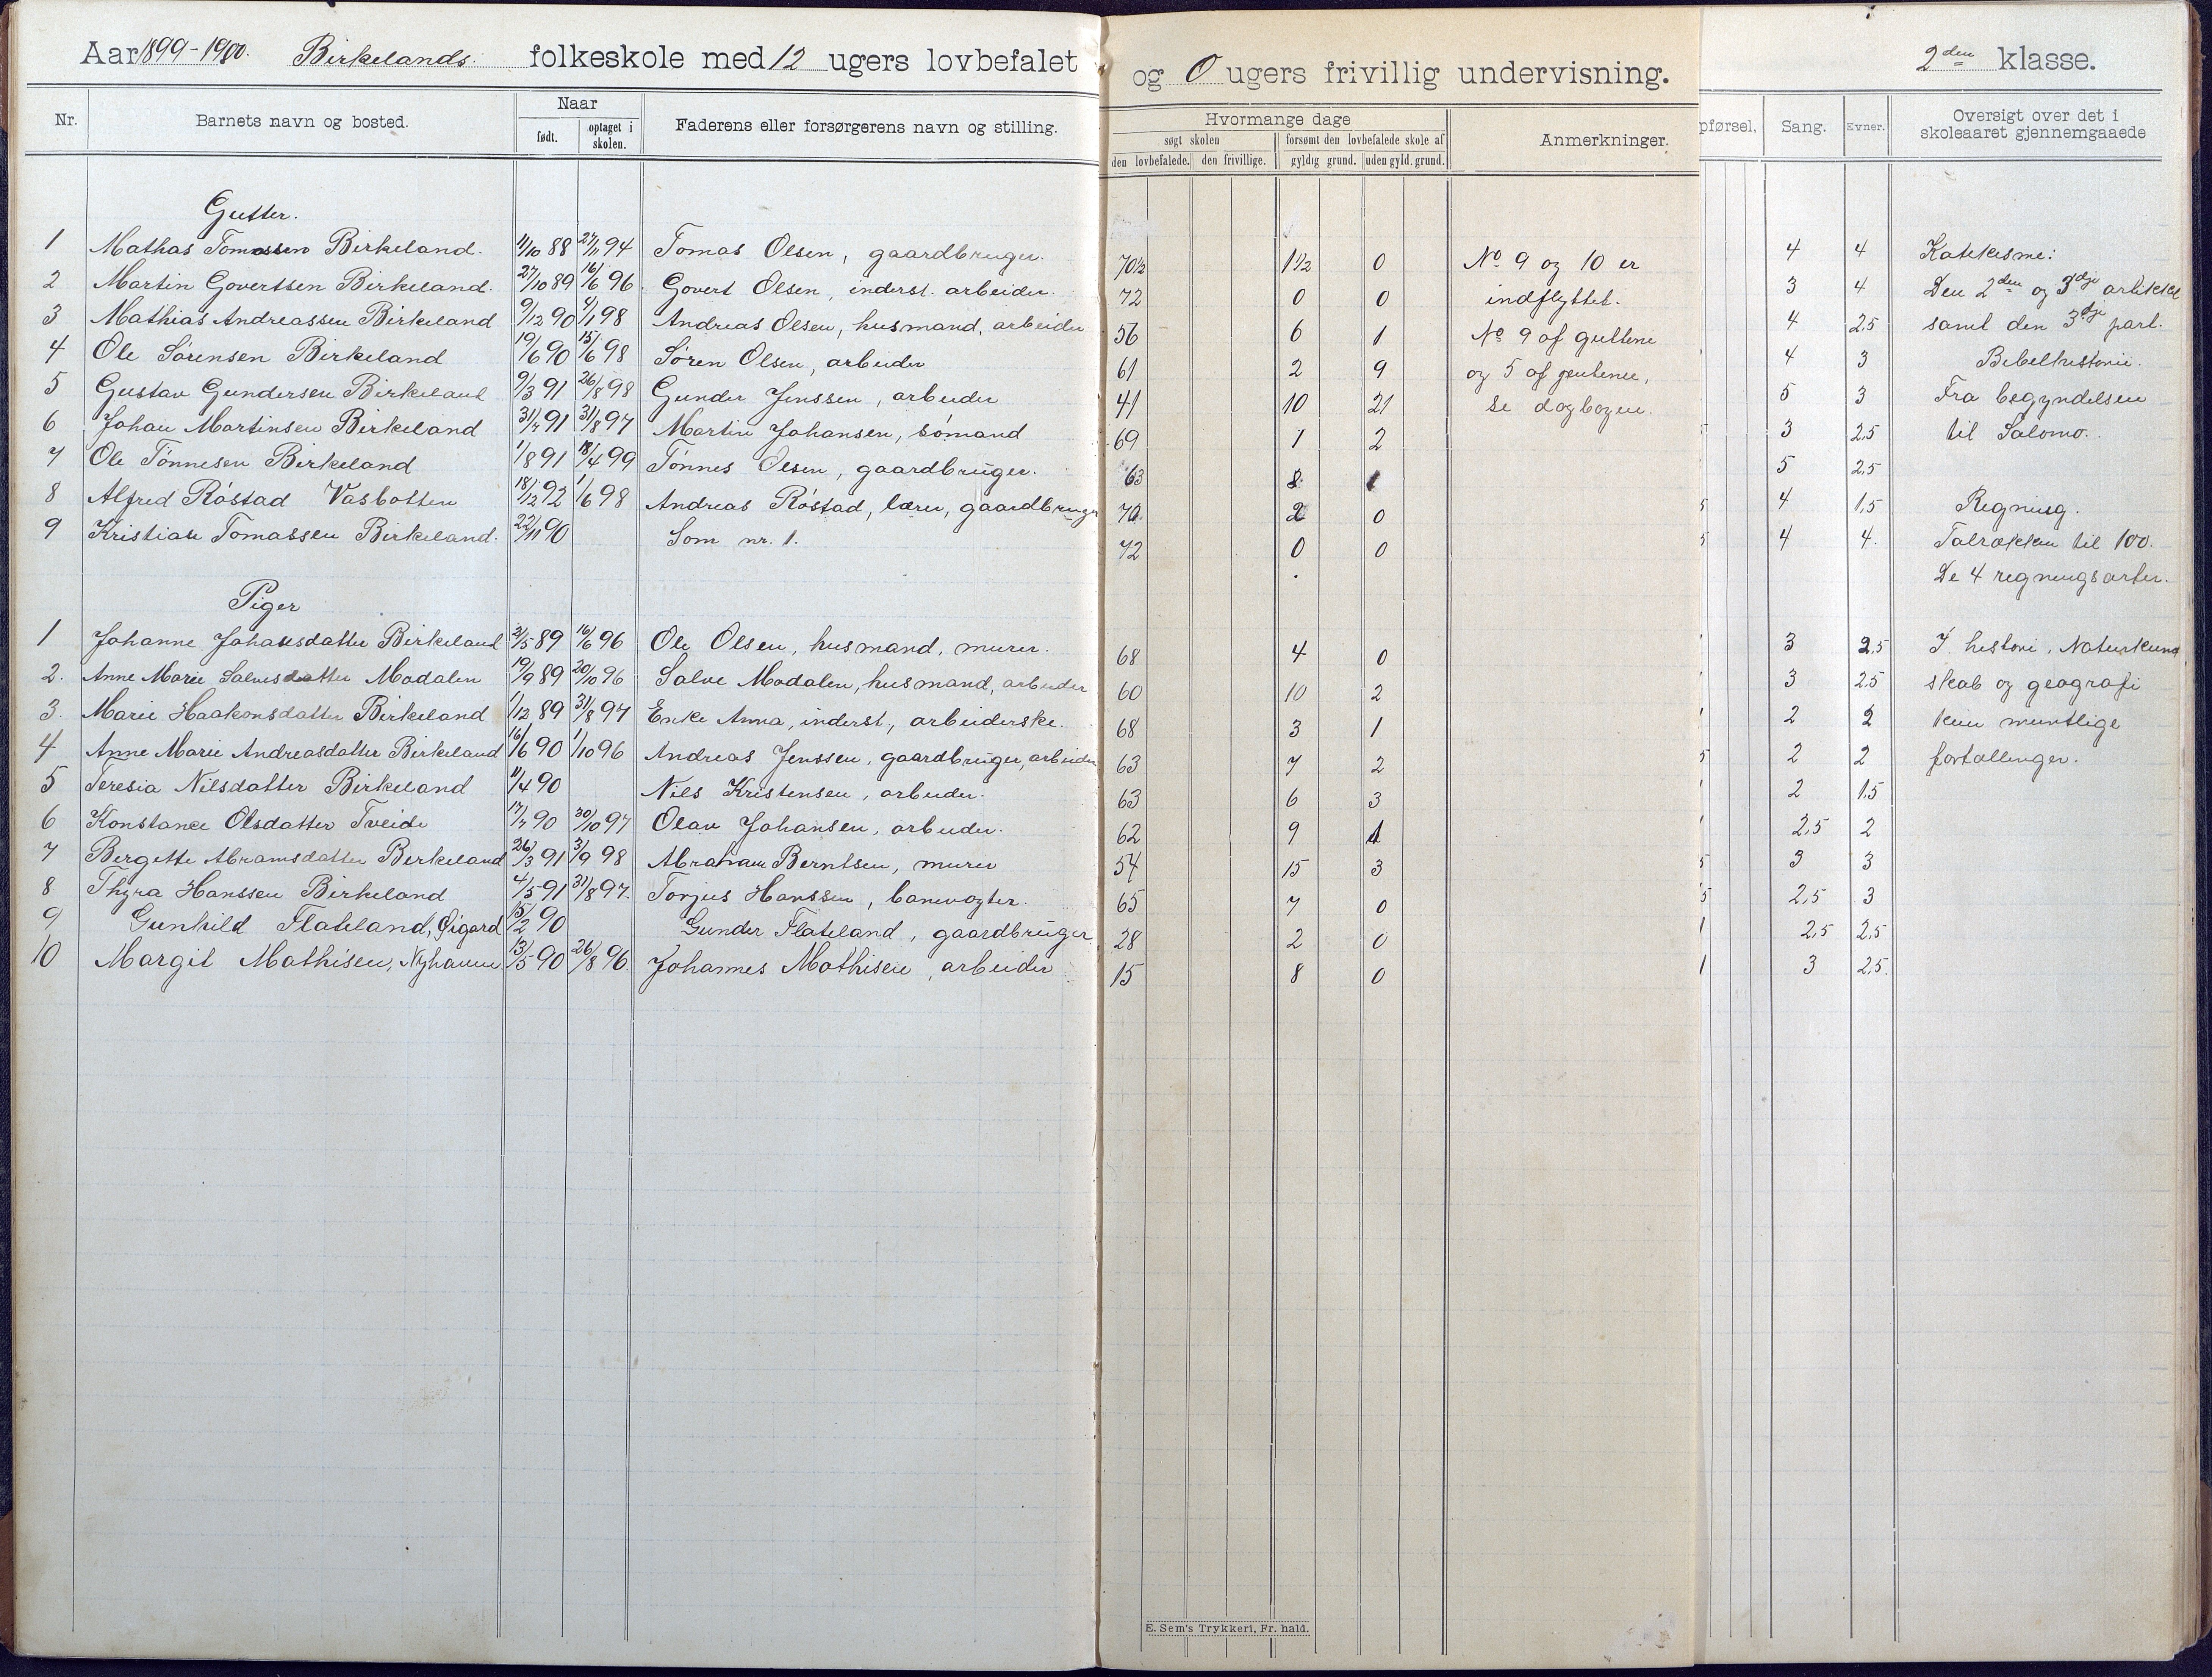 Aar 1899-1900. Birkelands folkeskole med 12 ugers lovbefalet og 0 ugers frivillig undervisning. 2den klasse.
Nr. Barnets navn og bosted. Naar født. optaget i skolen. Faderens eller forsørgerens navn og stilling.
Gutter.
1 Mathas Tomassen Birkeland. 11/10 88 27/11 94 Tomas Olsen, gaardbruger.
2 Martin Govertsen Birkeland. 27/10 89 16/6 96. Govert Olsen, inderst. arbeider.
3 Mathias Andreassen Birkeland 9/12 90 4/1 98 Andreas Olsen, husmand, arbeider
4 Ole Sørensen Birkeland 19/6 90 15/6 98 Søren Olsen, arbeider
5 Gustav Gundersen Birkeland 9/3 91 26/8 98 Gunder Jenssen, arbeider
6 Johan Martinsen Birkeland 31/7 91 31/8 97 Martin Johansen, sømand
7 Ole Tønnesen Birkeland 1/8 91 18/4 99 Tønnes Olsen, gaardbruger.
8 Alfred Røstad Vasbotten 18/12 92 1/6 98 Andreas Røstad, lærer, gaardbruger
9 Kristian Tomassen Birkeland. 22/11 90 Som nr. 1.
Piger
1 Johanne Johansdatter Birkeland 2/5 89 16/6 96 Ole Olsen, husmand, murer.
2. Anne Marie Salvesdatter Modalen 19/9 89 20/10 96 Salve Modalen, husmand, arbeider
3. Marie Haakonsdatter Birkeland 1/12 89 31/8 97 Enke Anna, inderst, arbeiderske.
4 Anne Marie Andreasdatter Birkeland 16/6 90 1/10 96 Andreas Jenssen, gaardbruger, arbeider
5 Teresia Nilsdatter Birkeland 11/4 90 Nils Kristensen, arbeider.
6 Konstance Olsdatter Tveide 17/7 90 30/10 97 Olav Johansen, arbeider.
7 Bergette Abramsdatter Birkeland 26/3 91 3/9 98 Abraham Berntsen, murer
8 Thyra Hanssen Birkeland 4/5 91 31/8 97. Torjus Hanssen, banevogter.
9 Gunhild Flateland, Øigard 15/2 90 Gunder Flateland, gaardbruger
10 Margit Mathisen, Nyhavn 13/5 90 26/8 96 Johannes Mathisen, arbeider
Hvormange dage
søgt skolen forsømt den lovbefalede skole af Anmerkninger.
den lovbefalede. den frivillige. gyldig grund. uden gyld. grund.
70 1/2 1 1/2 0 No 9 og 10 er
72 0 0 indflyttet.
56 6 1 No 9 af guttene
61 2 9 og 5 af jentene,
41 10 21 se dagbogen.
69 1 2
63 8 1
70 2 0
72 0 0
68 4 0
60 10 2
68 3 1
63 7 2
63 6 3
62 9 1
54 15 3
65 7 0
28 2 0
15 8 0
E. Sem's Trykkeri, Fr. hald.
pførsel. Sang. Evner. Oversigt over det i skoleaaret gjennemgaaede
4 4 Katekisme:
3 4 Den 2den og 3dje artikkel
4 2,5 samt den 3dje part.
4 3 Bibelhistorie.
5 3 Fra begyndelsen
3 2,5 til Salomo.
5 2,5
4 1,5 Regning.
4 4. Talrækken til 100.
De 4 regningsarter.
3 2,5 I historie, Naturkund
3 2,5 skab og geografi
2 2 kun muntlige
2 2 fortællinger.
2 1,5
2,5 2
3 3
2,5 3
2,5 2,5
3 2,5.